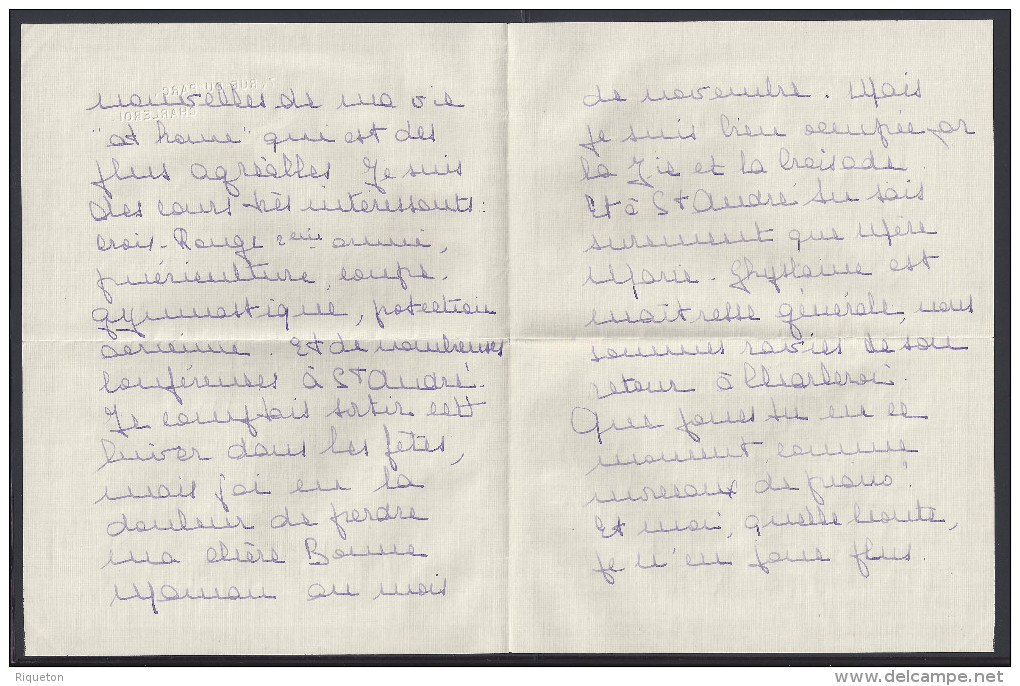 RUE DU PARC
CHARLEROI
nouvelles de ma vie
"at home" qui est des
plus agréables Je suis
des cours très intéressants :
Croix-Rouge 2eme année,
puériculture, coupe.
gymnastique, protection
aérienne. Et de nombreuses
conférences à St André.
Je comptais sortir cet
hiver dans les fêtes,
mais j'ai eu la
douleur de perdre
ma chère Bonne
Maman au mois
de novembre. Mais
je suis bien occupée par
la J et la Croisade
Et à St André tu sais
surement que Mère
Marie-Ghyslaine est
maîtresse générale, nous
sommes ravies de son
retour à Charleroi.
Que joues tu en ce
moment comme
morceaux de piano?
Et moi, quelle honte,
je n'en joue plus
Riqueton
www.delcampe.net